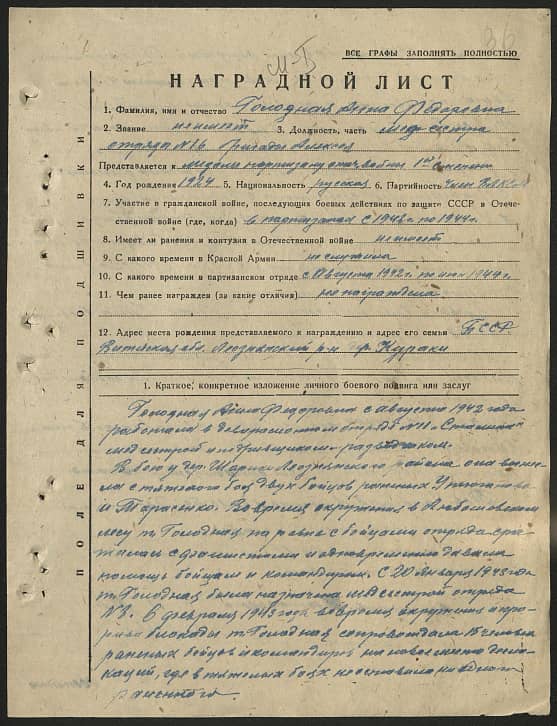 ВСЕ ГРАФЫ ЗАПОЛНЯТЬ ПОЛНОСТЬЮ
НАГРАДНОЙ ЛИСТ
1. Фамилия, имя и отчество Голодная Анна Федоровна
2. Звание не имеет 3. Должность, часть мед-сестра
отряда №6 бригады Алексея
Представляется к медали партизану отеч. войны 1ой степени
4. Год рождения 1924 5. Национальность русская 6. Партийность член ВЛКСМ
7. Участие в гражданской войне, последующих боевых действиях по защите СССР в Отече-
ственной войне (где, когда) в партизанах с 1942г. по 1944г.
8. Имеет ли ранения и контузии в Отечественной войне не имеет
9. С какого времени в Красной Армии не служила
10. С какого времени в партизанском отряде с августа 1942г. по 1944г.
11. Чем ранее награжден (за какие отличия) не награждена
12. Адрес места рождения представляемого к награждению и адрес его семьи БССР
Витебская обл. Лиознянский р-н д. Кураки
1. Краткое, конкретное изложение личного боевого подвига или заслуг
Голодная Анна Федоровна с августа 1942 года
работала в отряде Сталина
медсестрой и подрывником-разведчиком.
В бою у дер. Лиознянского района она вынес-
ла с тяжелого боя двух бойцов раненых
и Тарасенко. Во время окружения в
лесу т. Голодная на равне с бойцами отряда сра-
жалась с фашистами и одновременно давала
помощь бойцам и командирам. С 20 января 1943 года
т. Голодная была назначена медсестрой отряда
6 февраля 1943 года во время окружения и про-
рыва блокады т. Голодная сопровождала 15 человек
раненых бойцов и командиров на новое место дисло-
каций, где в тяжелых боях не оставила ни одного
раненного.
ПОЛЕ ДЛЯ ПОДШИВКИ